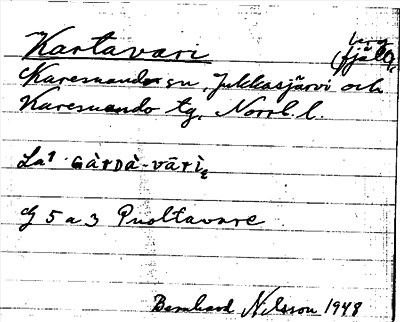 Kartavari (fjäll) berg
Karesuando sn, Jukkasjärvi och
Karesuando tg, Norrb. l.
La¹ GÀRDÀ-VĀRÌ
G 5 a 3 Puoltavare
Bernhard Nilsson 1948